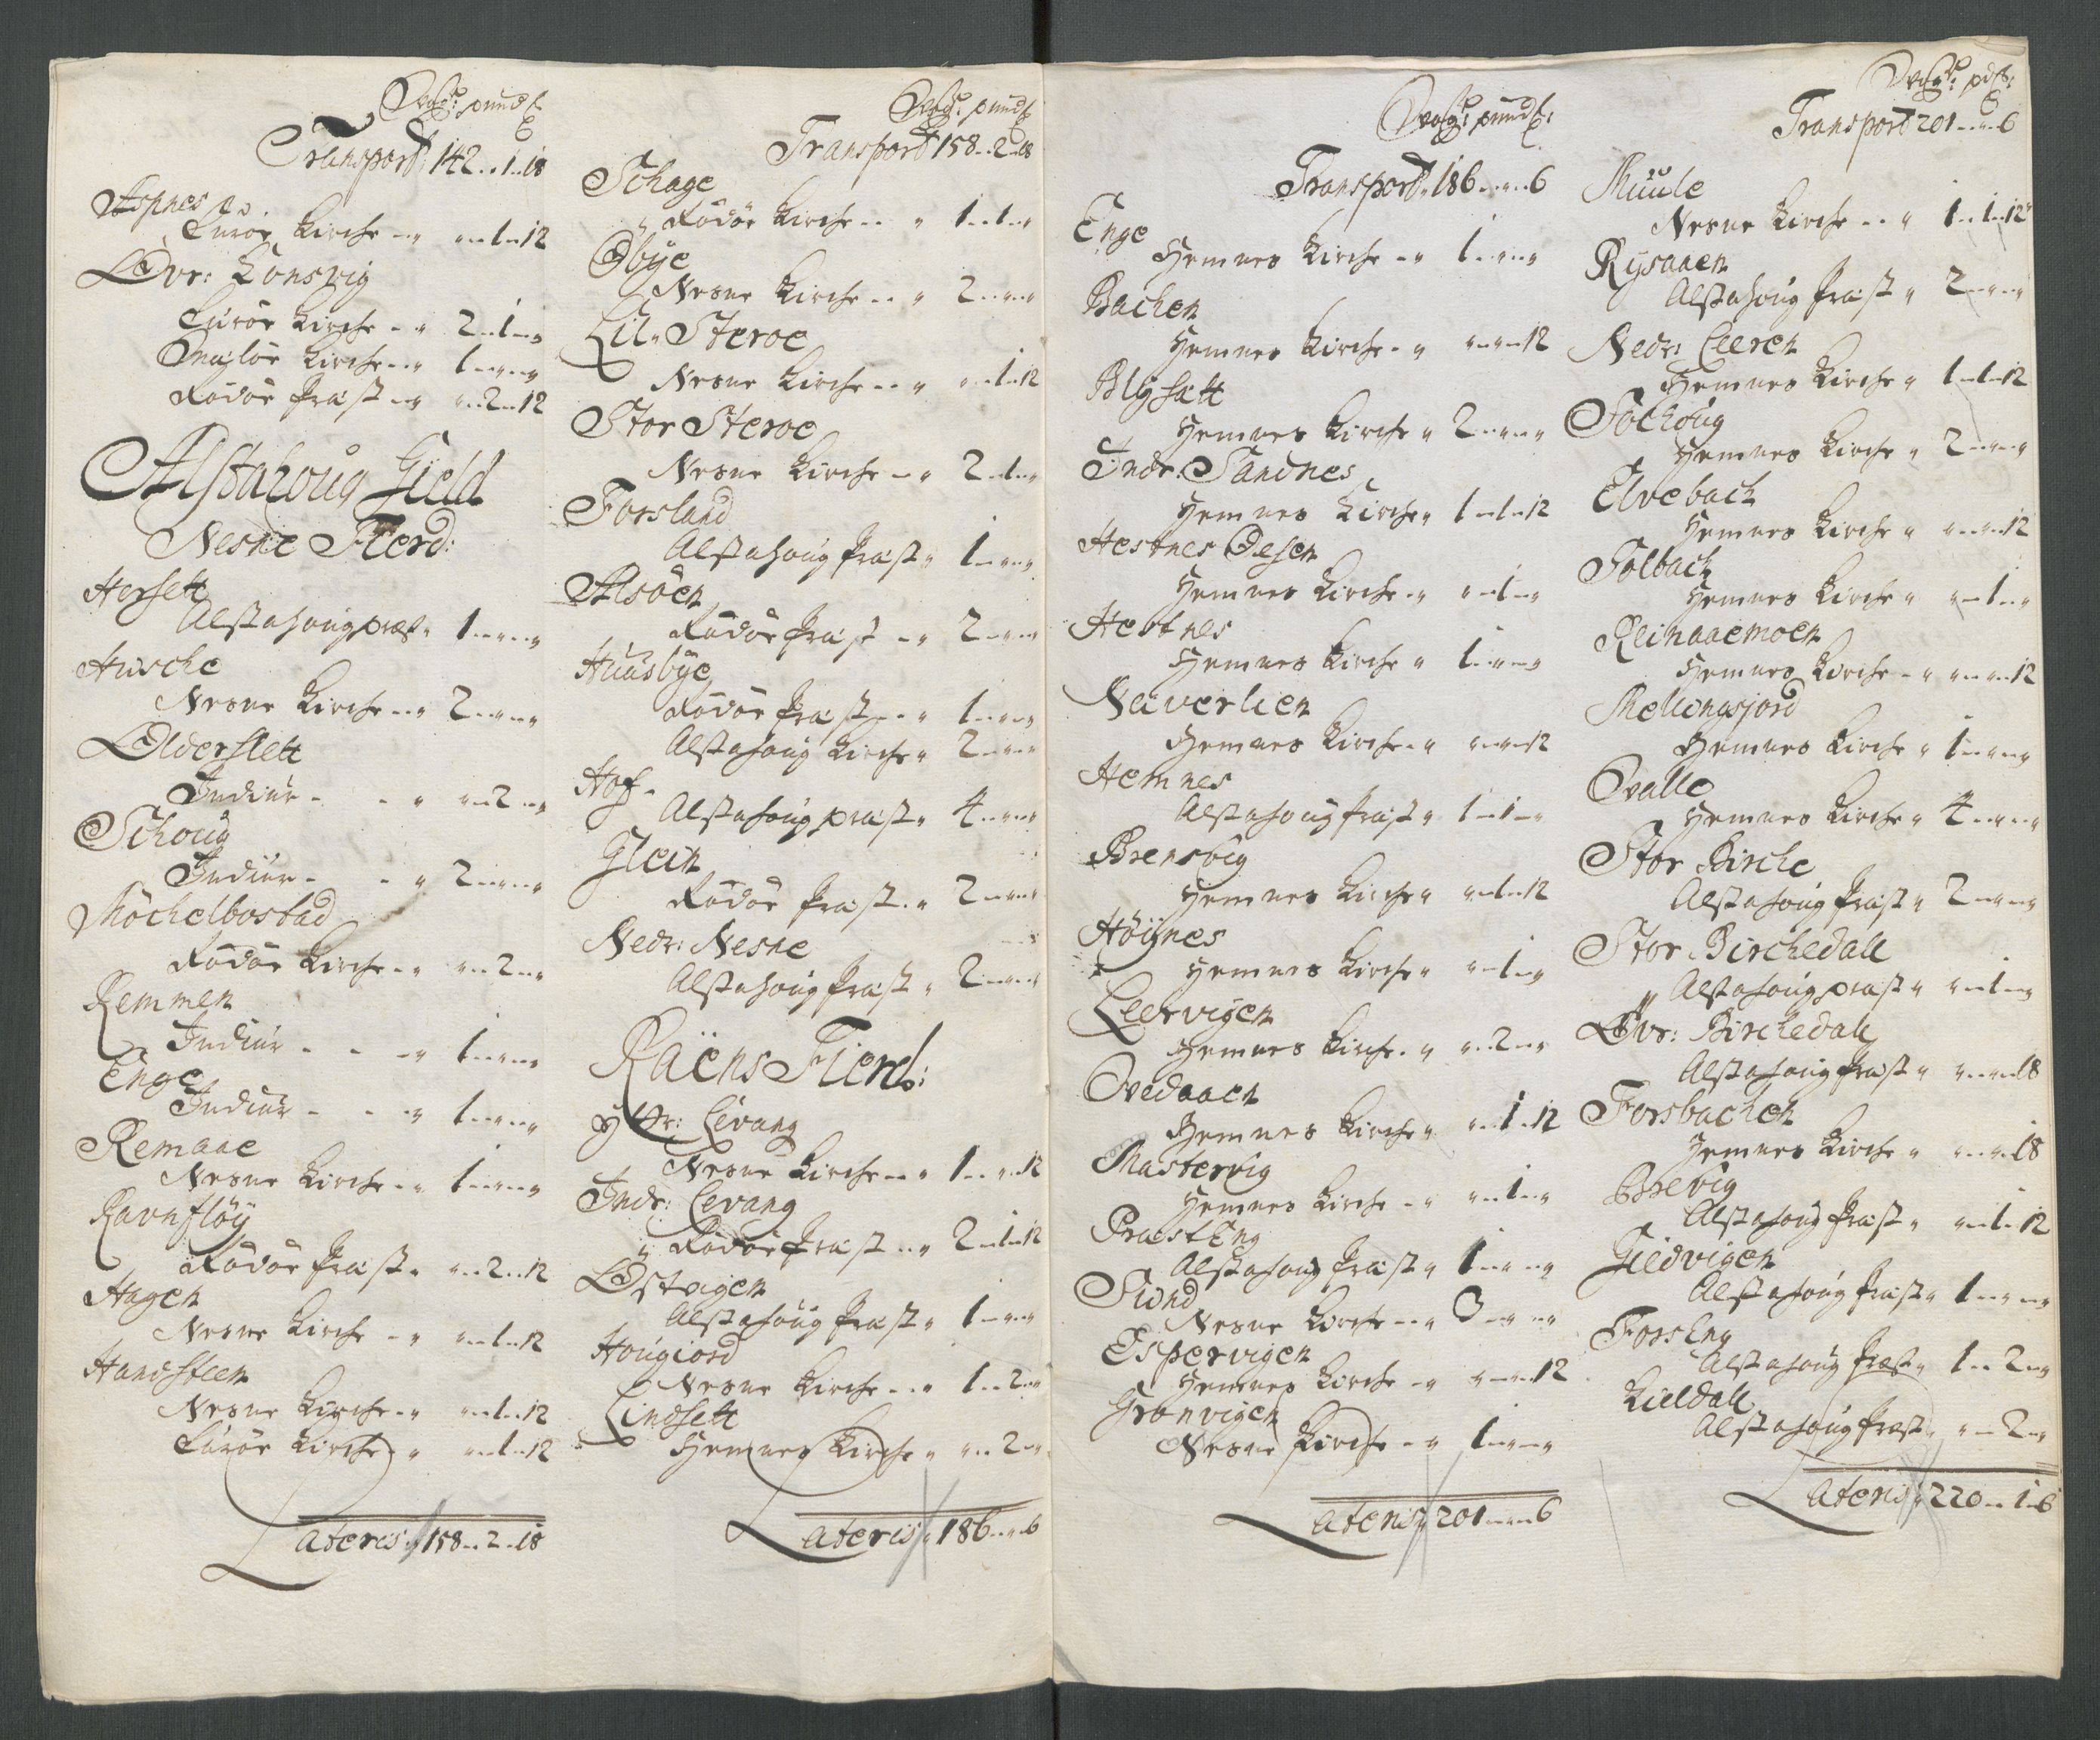 Transport 142..1..18
Aspnes
Lurøe Kirche -„ „-1-12
Øvr: Konsvig
Lurøe Kirche -„ 2-1-„
Kirche -„ 1-„-„
Rødøe Præst -„ „-2-12
Alstahoug Gield
Nesne Fierd:
Hersett
Alstahoug præst „ 1-„-„
Husche
Nesne Kirche -„ 2-„-„
Olderslett
Indiur - - „ „-2-„
Schoug
Indiur - - „ 2-„-„
Møchelbostad
Rødøe Kirche -„ „-2-„
Remmen
Indiur - - -„ 1-„-„
Enge
Indiur - - -„ 1-„-„
Remaae
Nesne Kirche -„ 1-„-„
Ravnfløÿ
Rødøe Præst „ „-2-12
Hagen
Nesne Kirche -„ „-1-12
Handsteen
Nesne Kirche -„ „-1-12
Lurøe Kirche -„ „-1-12
Lateris „ 158-2-18
Transport 158-2-18
Schage
Rødøe Kirche - „ 1-1-„
Øbÿe
Nesne Kirche - „ 2-„-„
Lil Steroe
Nesne Kirche - „ „-1-12
Stor Steroe
Nesne Kirche - „ 2-1-„
Forsland
Alstahoug Præst „ 1-„-„
Alsøen
Rødøe Præst - „ 2-„-„
Huusbÿe
Rødøe Præst - „ 1-„-„
Alstahoug Kirche „ 2-„-„
Hof -
Alstahoug præst „ 4-„-„
Glein
Rødøe Præst - „ 2-„-„
Nedr: Nesne
Alstahoug Præst „ 2-„-„
Raens Fierd:
Yttr: Levang
Nesne Kirche - „ 1-„-12
Indr: Levang
Rødøe Præst - „ 2-1-12
Østvigen
Alstahoug Præst „ 1-„-„
Hougiord
Nesne Kirche - „ 1-2-„
Lindsett
Hemnes Kirche „ „-2-„
Lateris „ 186-„-6
Transport „ 186-„-6
Enge
Hemnes Kirche -„ 1-„-„
Bachen
Hemnes Kirche - „ „-„-12
Blÿsætt
Hemnes Kirche „ 2-„-„
Indr: Sandnes
Hemnes Kirche „ 1-1-12
Hestnes Øesen
Hemnes Kirche - „ „-1-„
Hestnes
Hemnes Kirche „ 1-„-„
Neverlien
Hemnes Kirche - „ „-„-12
Hemnes
Alstahoug Præst „ 1-1-„
Brensvig
Hemnes Kirche „ „-1-12
Høÿnes
Hemnes Kirche „ „-1-„
Leervigen
Hemnes Kirche - „ „-2-„
Ovedaaen
Hemnes Kirche „ „-1-12
Mastervig
Hemnes Kirche - „ „-1-„
Præst Eng
Alstahoug Præst „ 1-„-„
Sund
Nesne Kirche - „ 3-„-„
Espervigen
Hemnes Kirche - „ „-„-12
Grønvigen
Nesne Kirche - „ 1-„-„
Lateris „ 201-„-6
Transport 201-„-6
Muule
Nesne Kirche - „ 1-1-12
Rÿsaaen
Alstahoug Præst „ 2-„-„
Nedr: Leeren
Hemnes Kirche „ 1-1-12
Hemnes Kirche „ 2-„-„
Elvebach
Hemnes Kirche „ „-„-12
Solbach
Hemnes Kirche „ „-1-„
Reinaaemoen
Hemnes Kirche - „ „-„-12
Mellingsjord
Hemnes Kirche „ 1-„-„
Ovalle
Hemnes Kirche „ 4-„-„
Stor Birche
Alstahoug Præst „ 2-„-„
Stor Birchedall
Alstahoug præst „ „-1-„
Øvr: Birchedall
Alstahoug Præst „ „-„-18
Forsbachen
Hemnes Kirche „ „-„-18
Brevig
Alstahoug Præst „ „-1-12
Gildvigen
Alstahoug Præst „ 1-„-„
Forseng
Alstahoug Præst „ 1-2-„
Kieldall
Alstahoug Præst „ „-2-„
Lateris „ 220-1-6